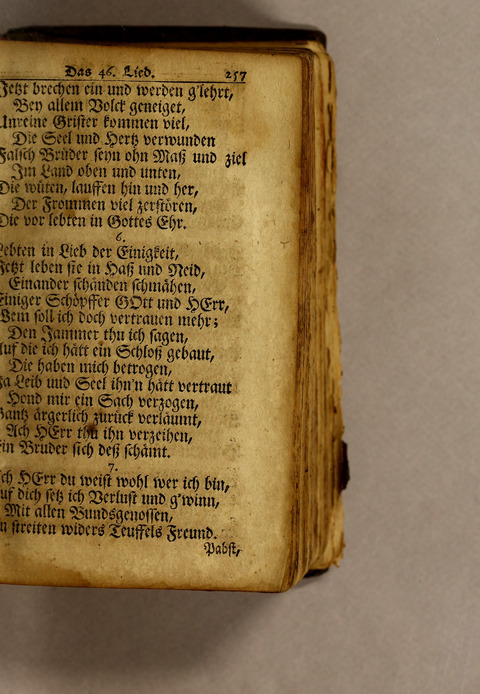 Das 46. Lied. 257
Jetzt brechen ein und werden g'lehrt,
Bey allem Volck geneiget,
Unreine Grister kommen viel,
Die Seel und Hertz verwunden
Falsch Brüder seyn ohn Maß und ziel
Im Land oben und unten,
Die wüten, lauffen hin und her,
Der Frommen viel zerstören,
Die vor lebten in Gottes Ehr.
6.
Lebten in Lieb der Einigkeit,
Jetzt leben sie in Haß und Neid,
Einander schänden schmähen,
Einiger Schöpffer GOtt und HErr,
Wem soll ich doch vertrauen mehr;
Den Jammer thu ich sagen,
Auf die ich hätt ein Schloß gebaut,
Die haben mich betrogen,
Ja Leib und Seel ihn'n hätt vertraut
Hond mir ein Sach verzogen,
Gantz ärgerlich zurück verläumt,
Ach HErr thu ihn verzeihen,
ein Bruder sich deß schämt.
7.
Ach HErr du weist wohl wer ich bin,
Auf dich setz ich Verlust und g'winn,
Mit allen Bundsgenossen,
streiten widers Teuffels Freund.
Pabst,